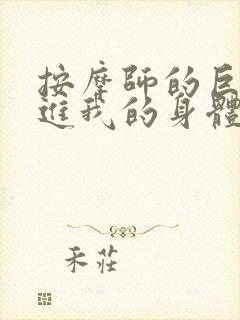 按摩師的巨
進我的身體
禾莊